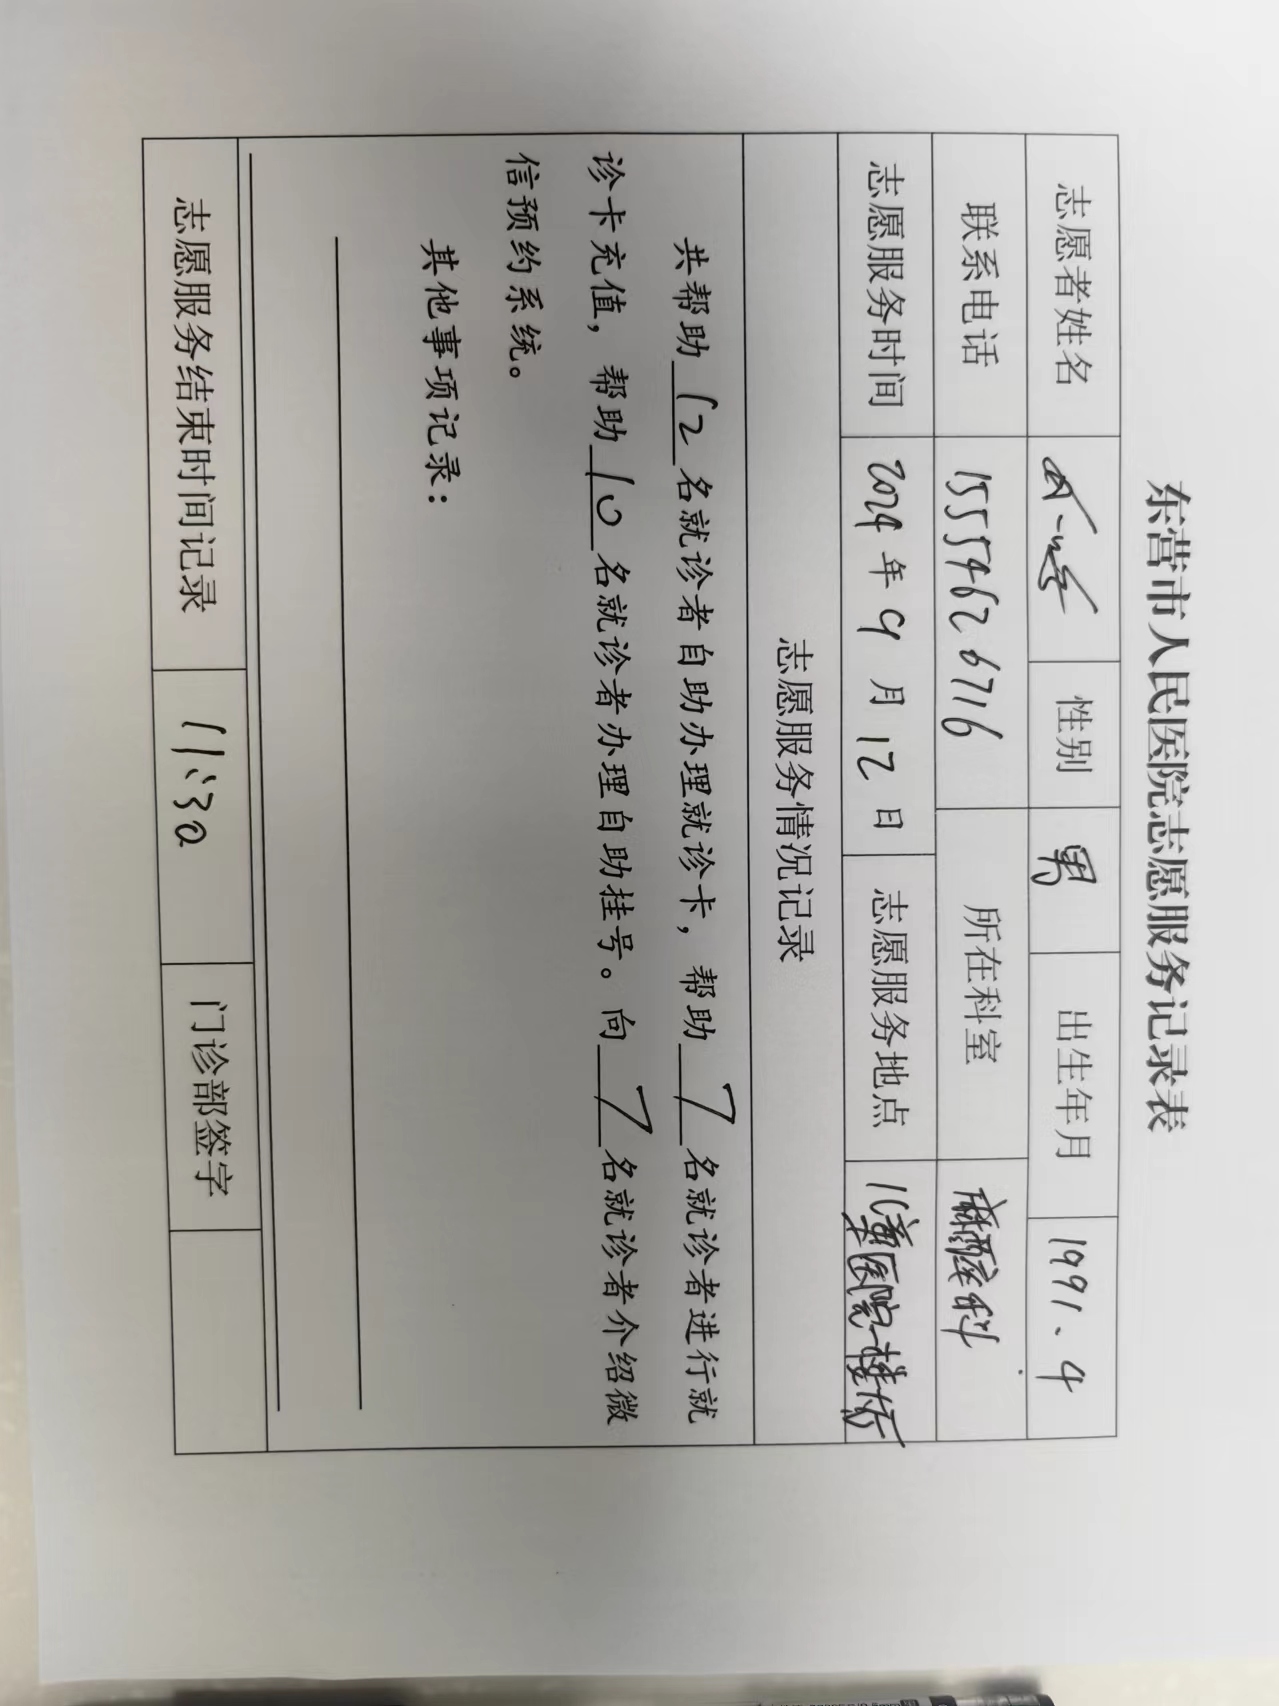 东营市人民医院志愿服务记录表
志愿者姓名 性别 男 出生年月 1991.4
联系电话 15554626716 所在科室 麻醉科
志愿服务时间 2024年9月12日 志愿服务地点 医院一楼大厅
志愿服务情况记录
共帮助12名就诊者自助办理就诊卡，帮助7名就诊者进行就
诊卡充值，帮助10名就诊者办理自助挂号。向7名就诊者介绍微
信预约系统。
其他事项记录：
志愿服务结束时间记录 11:30 门诊部签字